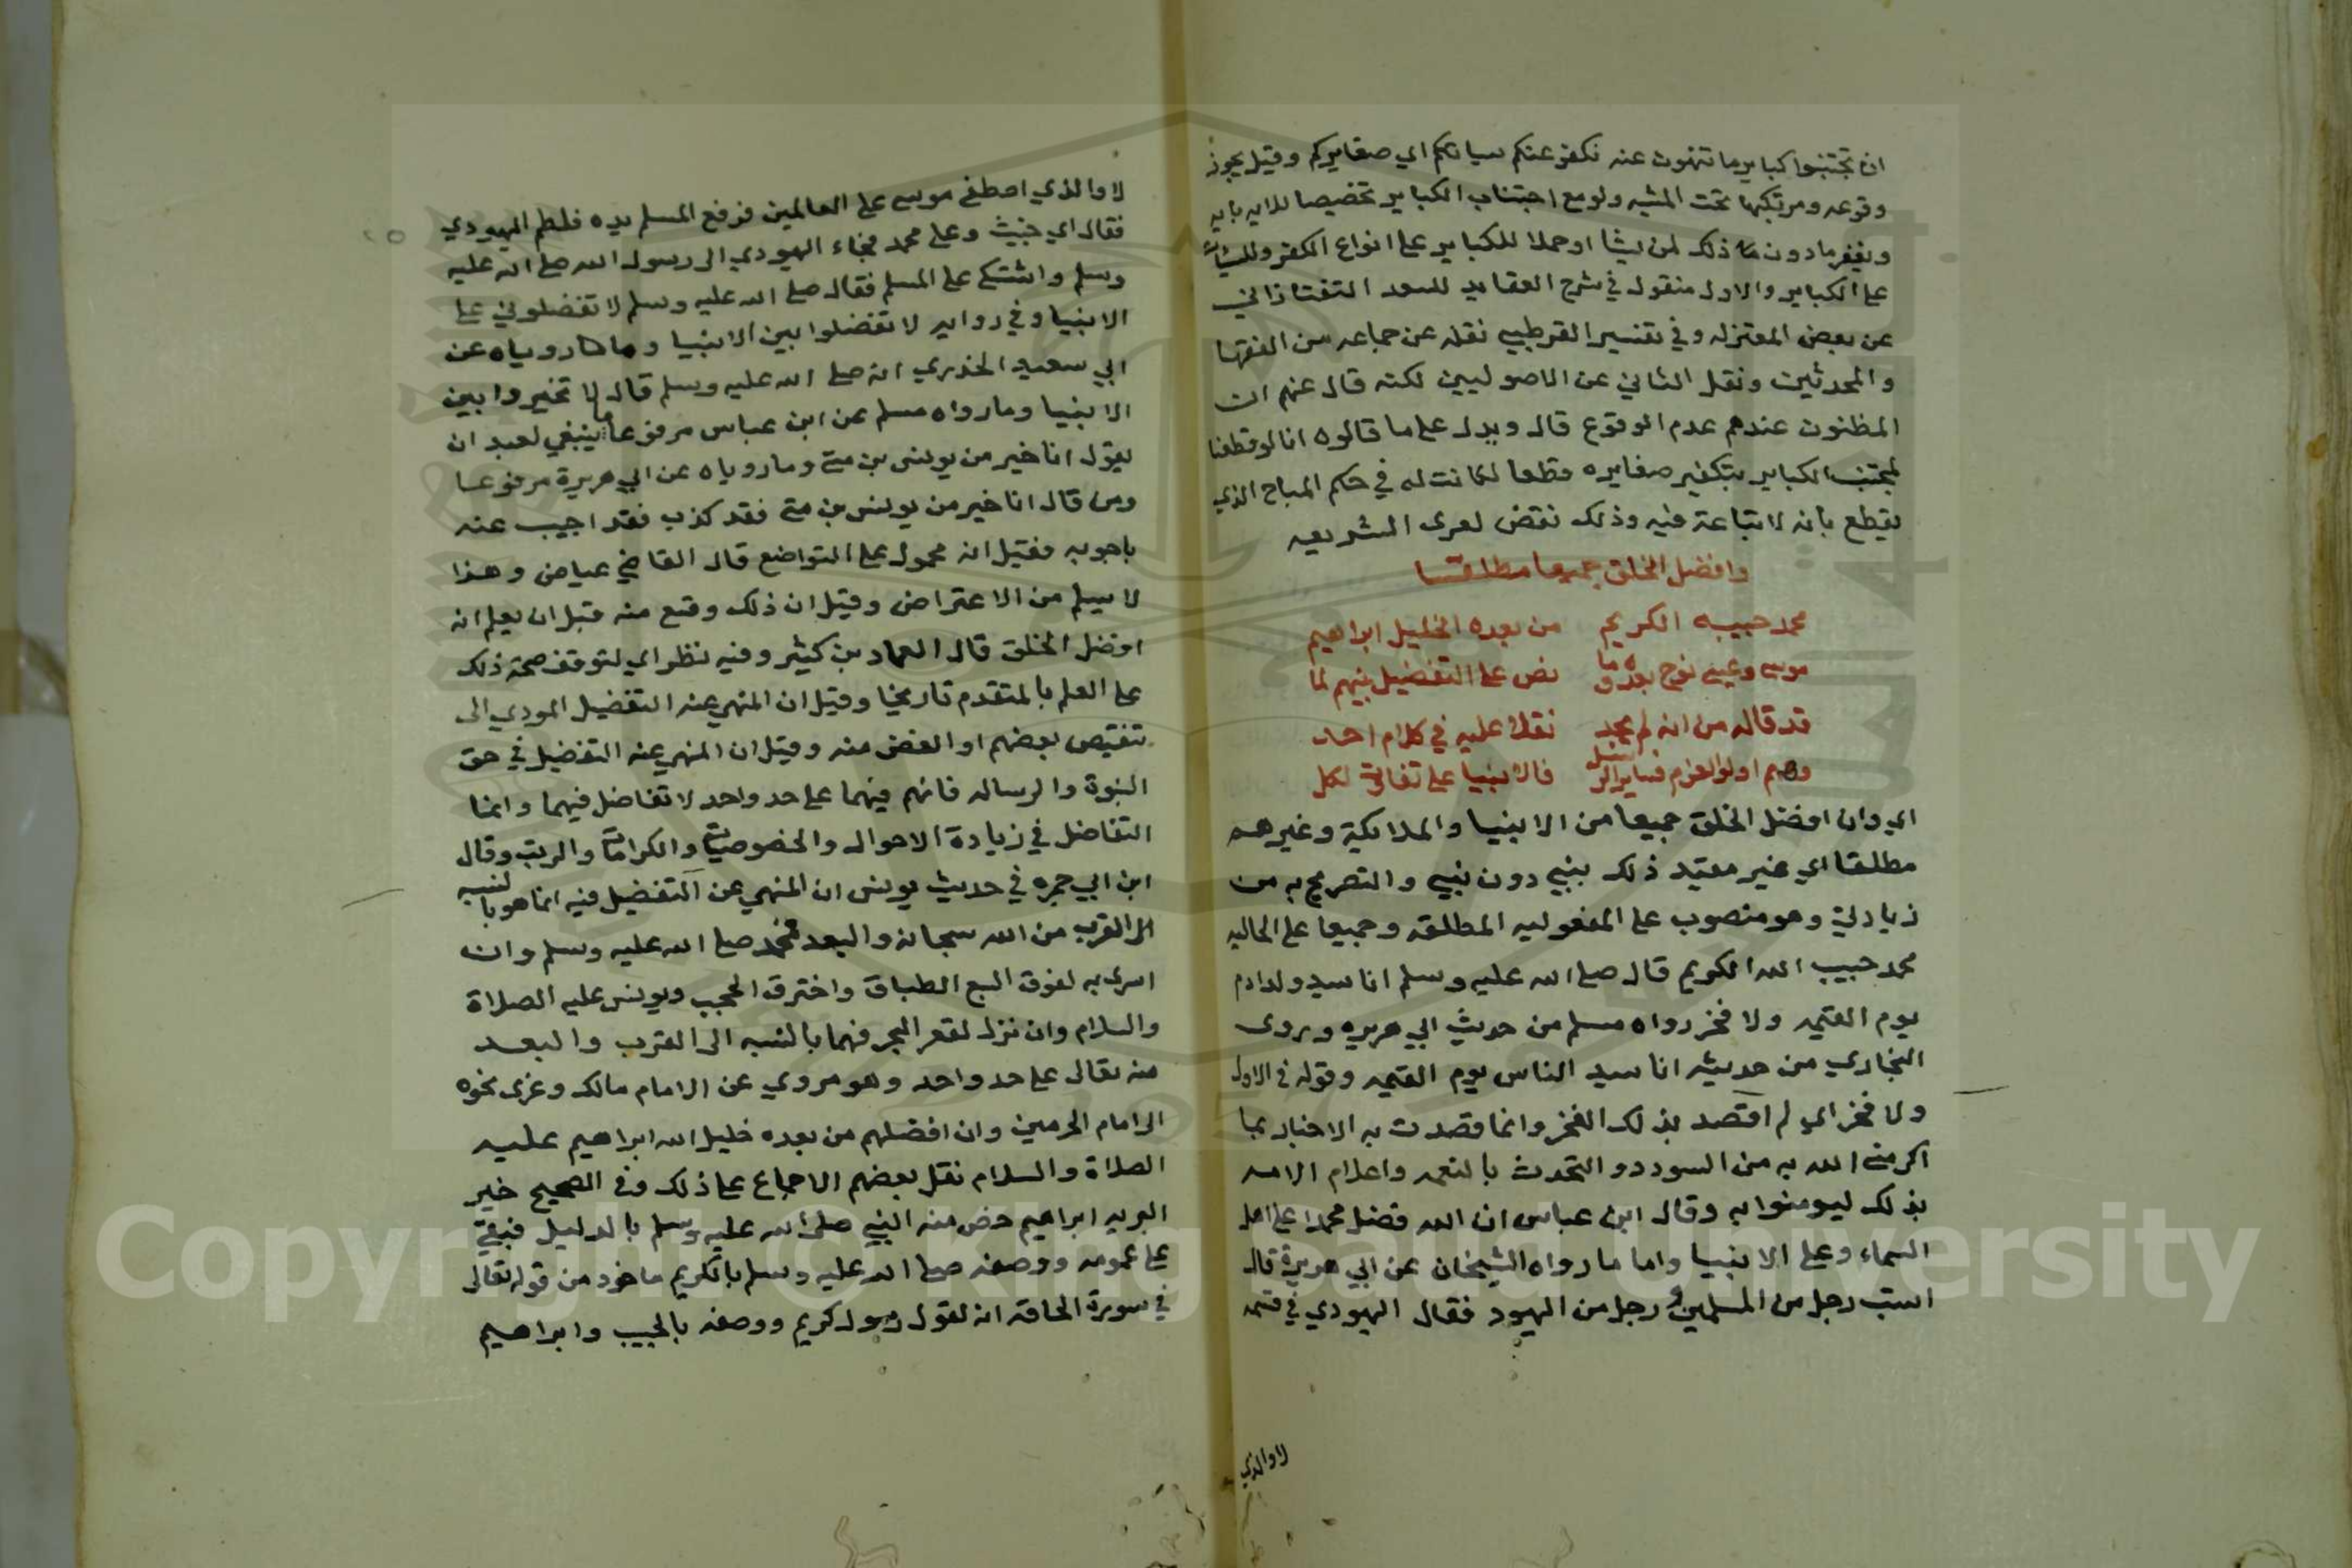 ان تجتنبوا كباير ما تنهون عنه نكفر عنكم سياتكم اي صغايركم وقيل يجوز
وقوعه ومرتكبها تحت المشيه ولو مع اجتناب الكباير تخصيصا للايه بايه
ويغفر ما دون ذلك لمن يشا او حملا للكباير على انواع الكفر وللسيات
على الكباير والاول منقول في شرح العقايد للسعد التفتازاني
عن بعض المعتزله وفي تفسير القرطبي نقله عن جماعه من الفقها
والمحدثين ونقل الثاني عن الاصوليين لكنه قال عنهم ان
المظنون عندهم عدم الوقوع قال ويدل على ما قالوه انا لو قطعنا
لمجتنب الكباير بتكفير صغايره قطعا لكانت له في حكم المباح الذي
يقطع بانه لا تباعة فيه وذلك نقض لعرى الشريعه
وافضل الخلق جميعا مطلقا
محمد حبيبه الكريم من بعده الخليل ابراهيم
موسى وعيسى نوح بعده وما نص على التفضيل بينهم لما
قد قاله من انه لم يجد نقلا عليه في كلام احد
وهم اولوا العزم فساير الرسل فالانبيا على تفاوت لكل
اي وان افضل الخلق جميعا من الانبيا والملايكة وغيرهم
مطلقا اي غير مقيد ذلك بنبي دون نبي والتصريح به من
زيادتي وهو منصوب على المفعوليه المطلقه وجميعا على الحاليه
محمد حبيب الله الكريم قال صلى الله عليه وسلم انا سيد ولد ادم
يوم القيمه ولا فخر رواه مسلم من حديث ابي هريره وروى
البخاري من حديثه انا سيد الناس يوم القيمه وقوله في الاول
ولا فخر اي لم اقصد بذلك الفخر وانما قصدت به الاخبار بما
اكرمني الله به من السودد والتحدث بالنعمه واعلام الامه
بذلك ليومنوا به وقال ابن عباس ان الله فضل محمدا على اهل
السماء وعلى الانبيا واما ما رواه الشيخان عن ابي هريرة قال
استب رجل من المسلمين ورجل من اليهود فقال اليهودي في قسمه
لا والذي
لا والذي اصطفى موسى على العالمين فرفع المسلم يده فلطم اليهودي
فقال اي خبيث وعلى محمد فجاء اليهودي الى رسول الله صلى الله عليه
وسلم واشتكى على المسلم فقال صلى الله عليه وسلم لا تفضلوني على
الانبيا وفي روايه لا تفضلوا بين الانبيا وما روياه عن
ابي سعيد الخدري انه صلى الله عليه وسلم قال لا تخيروا بين
الانبيا وما رواه مسلم عن ابن عباس مرفوعا ما ينبغي لعبد ان
يقول انا خير من يونس بن متى وما روياه عن ابي هريرة مرفوعا
ومن قال انا خير من يونس بن متى فقد كذب فقد اجيب عنه
باجوبه فقيل انه محمول على التواضع قال القاضي عياض وهذا
لا يسلم من الاعتراض وقيل ان ذلك وقع منه قبل ان يعلم انه
افضل الخلق قال العماد بن كثير وفيه نظر اي لتوقف صحة ذلك
على العلم بالمتقدم تاريخا وقيل ان المنهي عنه التفضيل المودي الى
تنقيص بعضهم او الغض منه وقيل ان المنهي عنه التفضيل في حق
النبوة والرساله فانهم فيهما على حد واحد لا تفاضل فيهما وانما
التفاضل في زيادة الاحوال والخصوصيات والكرامات والرتب وقال
ابن ابي جمره في حديث يونس ان المنهي عن التفضيل فيه انما هو بالنسبه
الى القرب من الله سبحانه والبعد فمحمد صلى الله عليه وسلم وان
اسرى به لفوق السبع الطباق واخترق الحجب ويونس عليه الصلاة
والسلام وان نزل لقعر البحر فهما بالنسبه الى القرب والبعد
منه تعالى على حد واحد وهو مروي عن الامام مالك وعزى نحوه
الى امام الحرمين وان افضلهم من بعده خليل الله ابراهيم عليه
الصلاة والسلام نقل بعضهم الاجماع على ذلك وفي الصحيح خير
البريه ابراهيم خص منه النبي صلى الله عليه وسلم بالدليل فبقي
على عمومه ووصفه صلى الله عليه وسلم بالكريم ماخوذ من قوله تعالى
في سورة الحاقه انه لقول رسول كريم ووصفه بالحبيب وابراهيم
Copyright © King Saud University